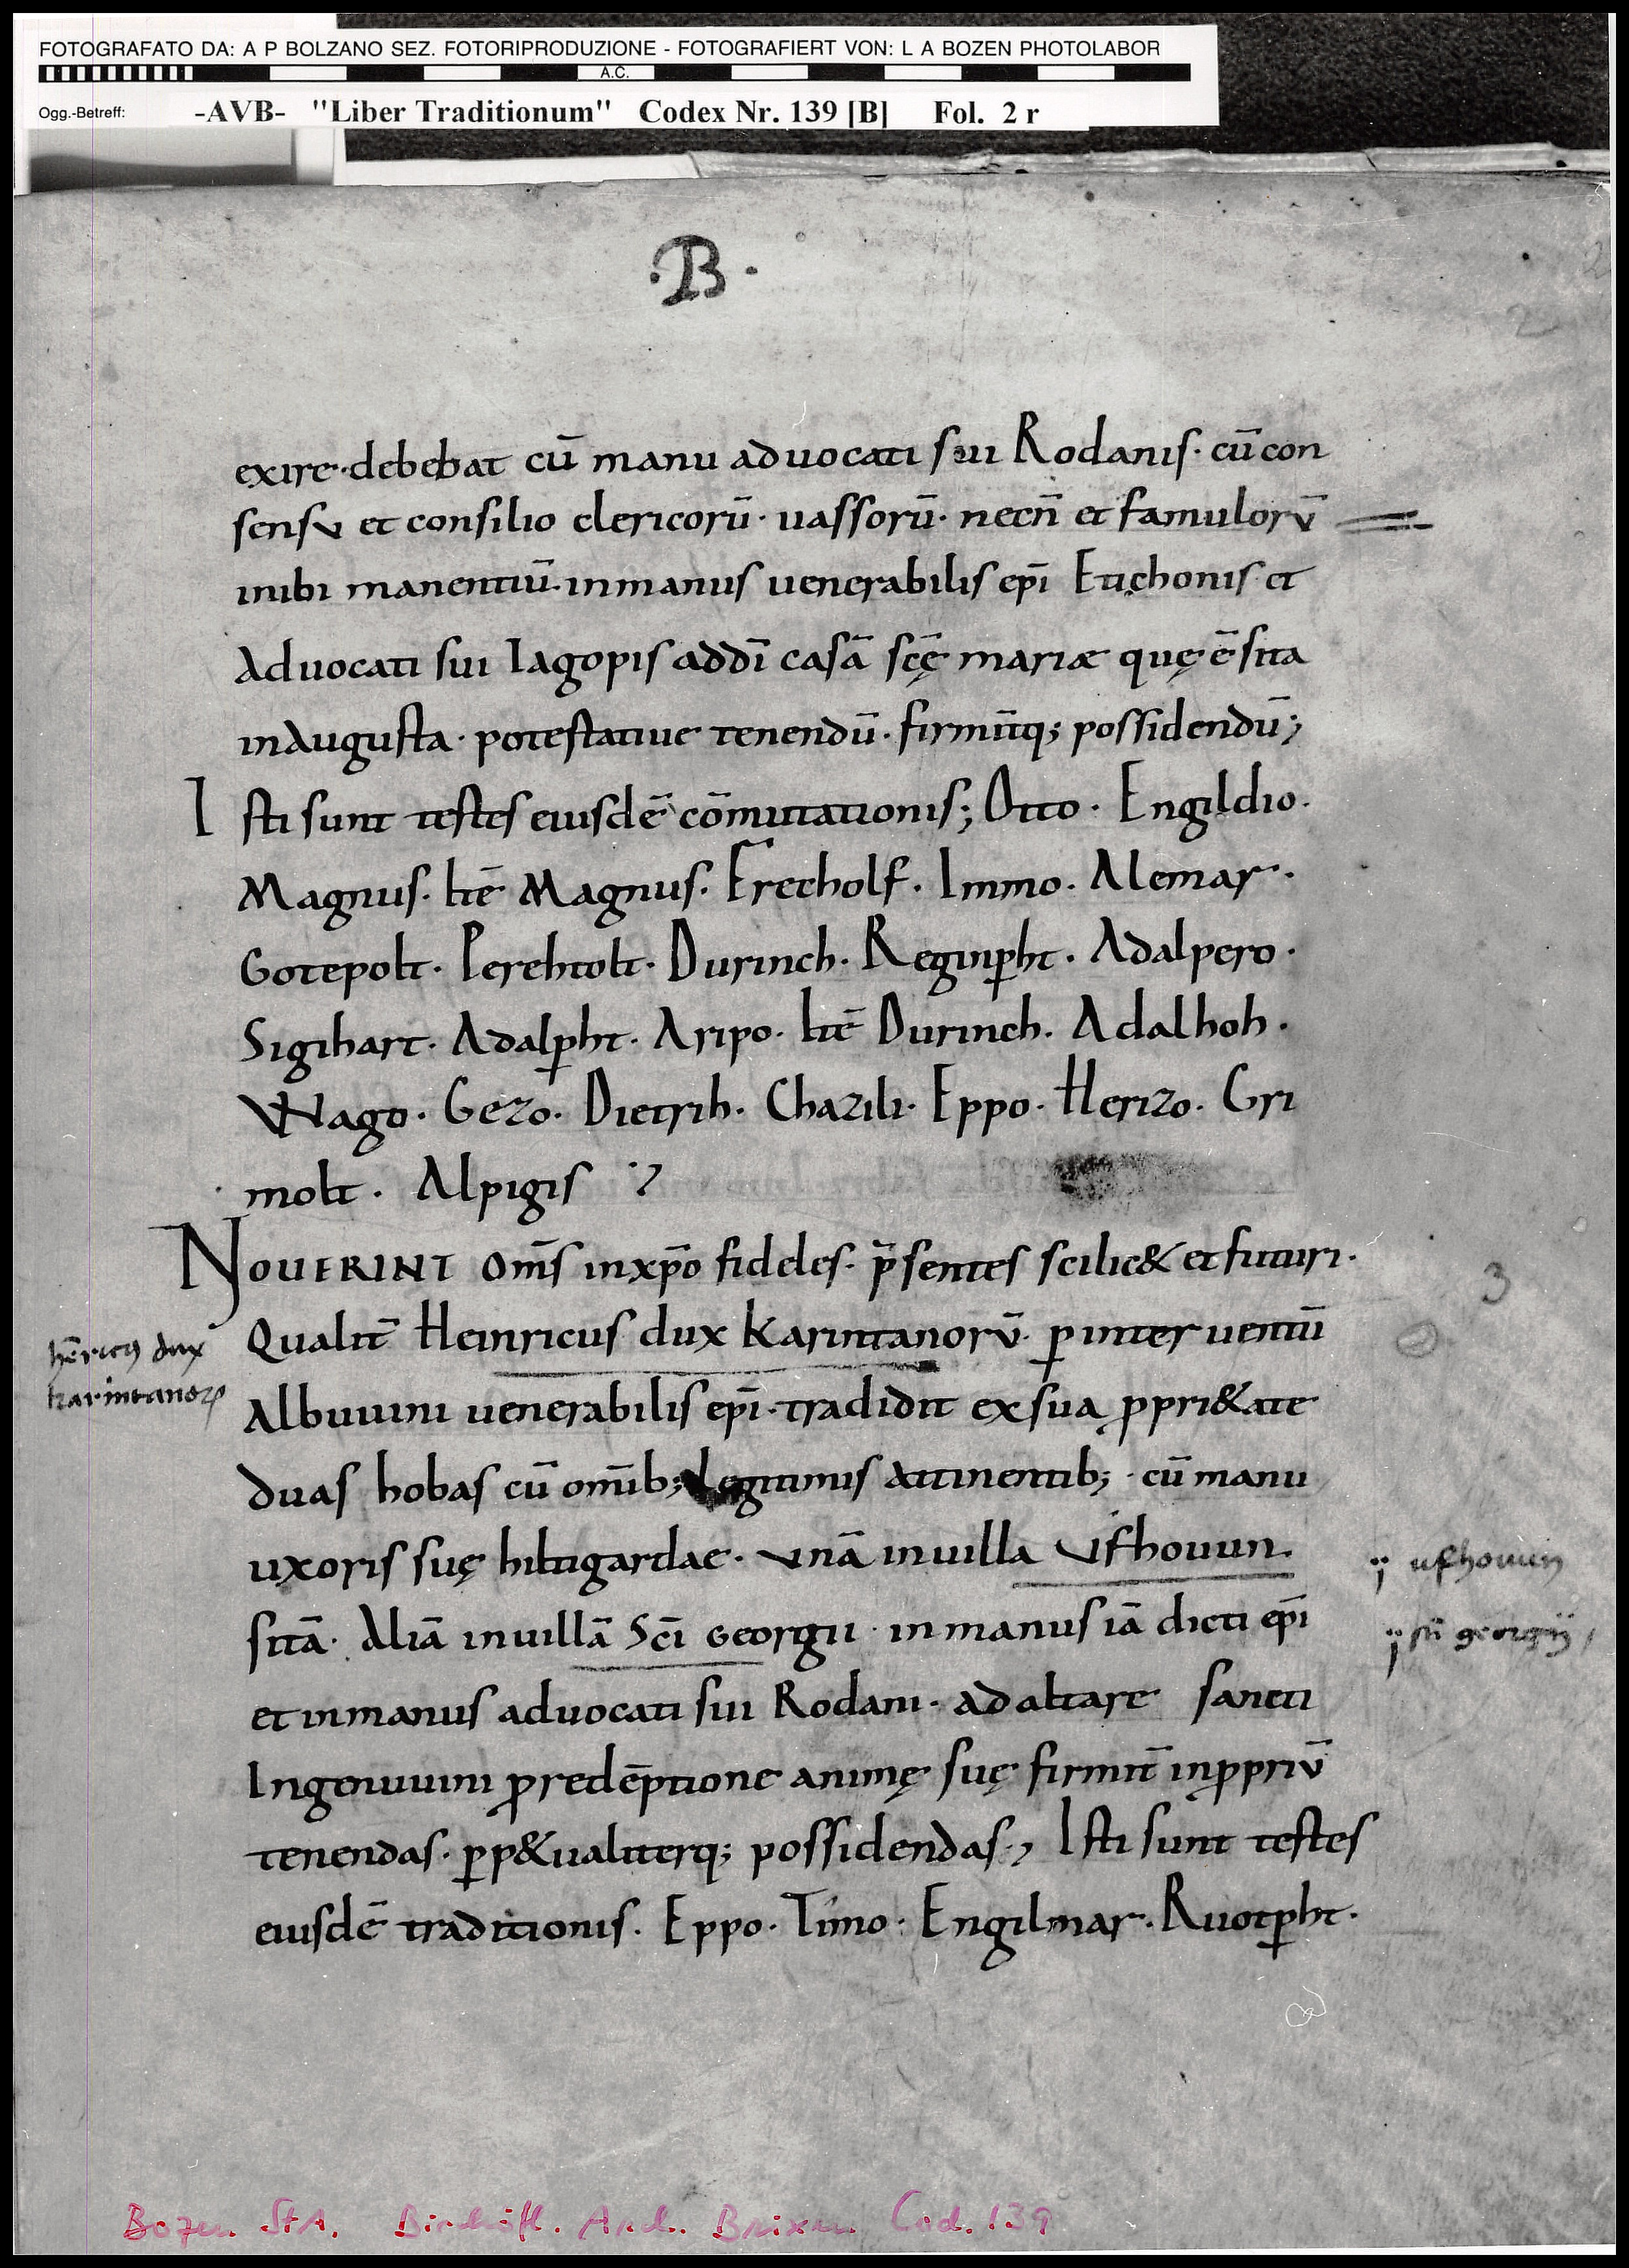 FOTOGRAFATO DA: A P BOLZANO SEZ. FOTORIPRODUZIONE - FOTOGRAFIERT VON: L A BOZEN PHOTOLABOR
A.C.
Ogg.-Betreff: -AVB- "Liber Traditionum" Codex Nr. 139 [B] Fol. 2 r
·B·
2
exire·debebat cū manu aduocati sui Rodanis· cū con
sensu et consilio clericorū· uassorū· necn̄ et famulorū
inibi manentiū· inmanus uenerabilis ep̄i Etichonis et
Aduocati sui Iagopis addī casā sc̄ę mariæ quę ē sita
inAugusta· potestatiue tenendū· firmit̄q; possidendū;
Isti sunt testes eiusdē cōmutationis; Otto· Engildio·
Magnus· Itē Magnus· Erecholf· Immo· Alemar·
Gotepolt· Perehtolt· Durinch· Reginꝑht· Adalpero·
Sigihart· Adalꝑht· Aripo· Itē Durinch· Adalhoh·
VVago· Gezo· Dietrih· Chazili· Eppo· Herizo· Gri
molt· Alpigis
NOUERINT Om̄s inxp̄o fideles· p̄sentes scilic& et futuri·
3
Qualit̄ Heinricus dux Karintanorū· ꝑ interuentū
hēricꝰ dux
karintanorꝝ
Albuuini uenerabilis ep̄i· tradidit ex sua ꝓpri&ate
duas hobas cū om̄ib; Legitimis Attinentib; · cū manu
uxoris suę hiltigardae· unā inuilla Vfhouun·
ij ufhouun
sitā· Aliā inuillā Sc̄i Georgii· inmanus iā dicti ep̄i
ij sti georgij
et inmanus aduocati sui Rodani· ad altare sancti
Ingenuuini ꝓ redēptione animę suę firmit̄ inꝓpriū
tenendas· ꝑp&ualiterq; possidendas; Isti sunt testes
eiusdē traditionis· Eppo· Timo· Engilmar· Ruotꝑht·
Bozen StA. Bischöfl. Arch. Brixen Cod. 139